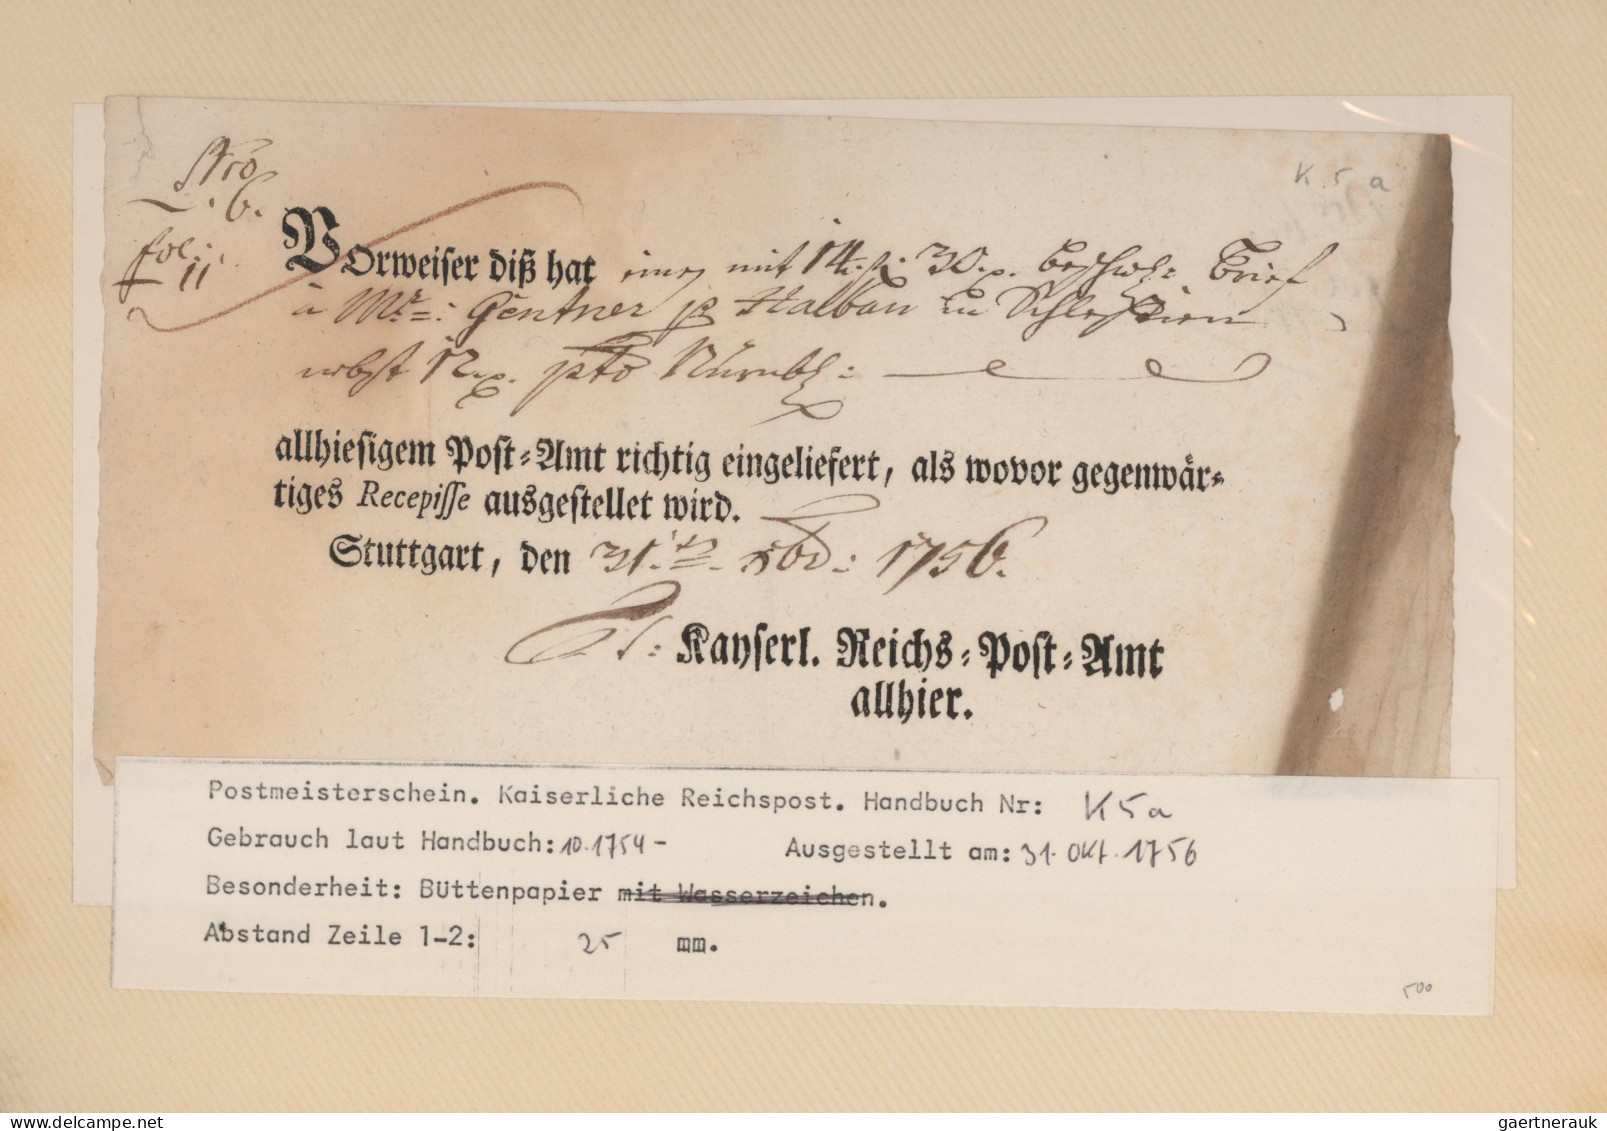 Nro
6.
fol: 11
K 5 a
VOrweiser diß hat einen mit 14. f. 30. x. beschw: Brief
à Mr: Gentner p Halbau in Schlesien
nebst 12 x. pto Nürnbg:
allhiesigem Post-Amt richtig eingeliefert, als wovor gegenwär-
tiges Recepisse ausgestellet wird.
Stuttgart, den 31. 1756.
Kayserl. Reichs-Post-Amt
allhier.
Postmeisterschein. Kaiserliche Reichspost. Handbuch Nr: K 5 a
Gebrauch laut Handbuch: 10.1754 - Ausgestellt am: 31. Okt. 1756
Besonderheit: Büttenpapier mit Wasserzeichen.
Abstand Zeile 1-2: 25 mm.
500
www.delcampe.net
gaertnerauk